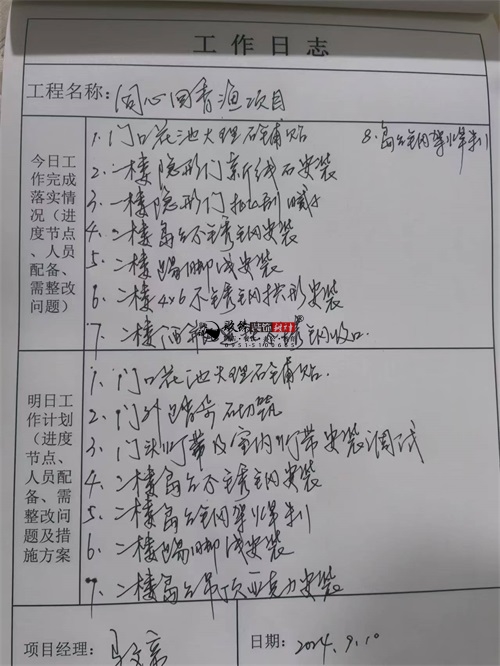 工作日志
工程名称: 同心回香渔项目
今日工作完成落实情况(进度节点、人员配备、需整改问题)
1. 门口花池大理石铺贴
8. 岛台钢架焊制
2. 一楼隐形门
安装
3. 一楼隐形门
4. 二楼岛台不锈钢安装
5. 二楼踢脚线安装
6. 二楼4×6不锈钢拱形安装
7. 二楼
不锈钢收口.
装饰
明日工作计划(进度节点、人员配备、需整改问题及措施方案
1. 门口花池大理石铺贴.
2. 门外
砌筑
3. 门头灯带及室内灯带安装调试
4. 二楼岛台不锈钢安装
5. 二楼岛台钢架焊制
6. 二楼踢脚线安装
7. 二楼岛台吊顶亚克力安装
项目经理:
日期: 2024.9.10